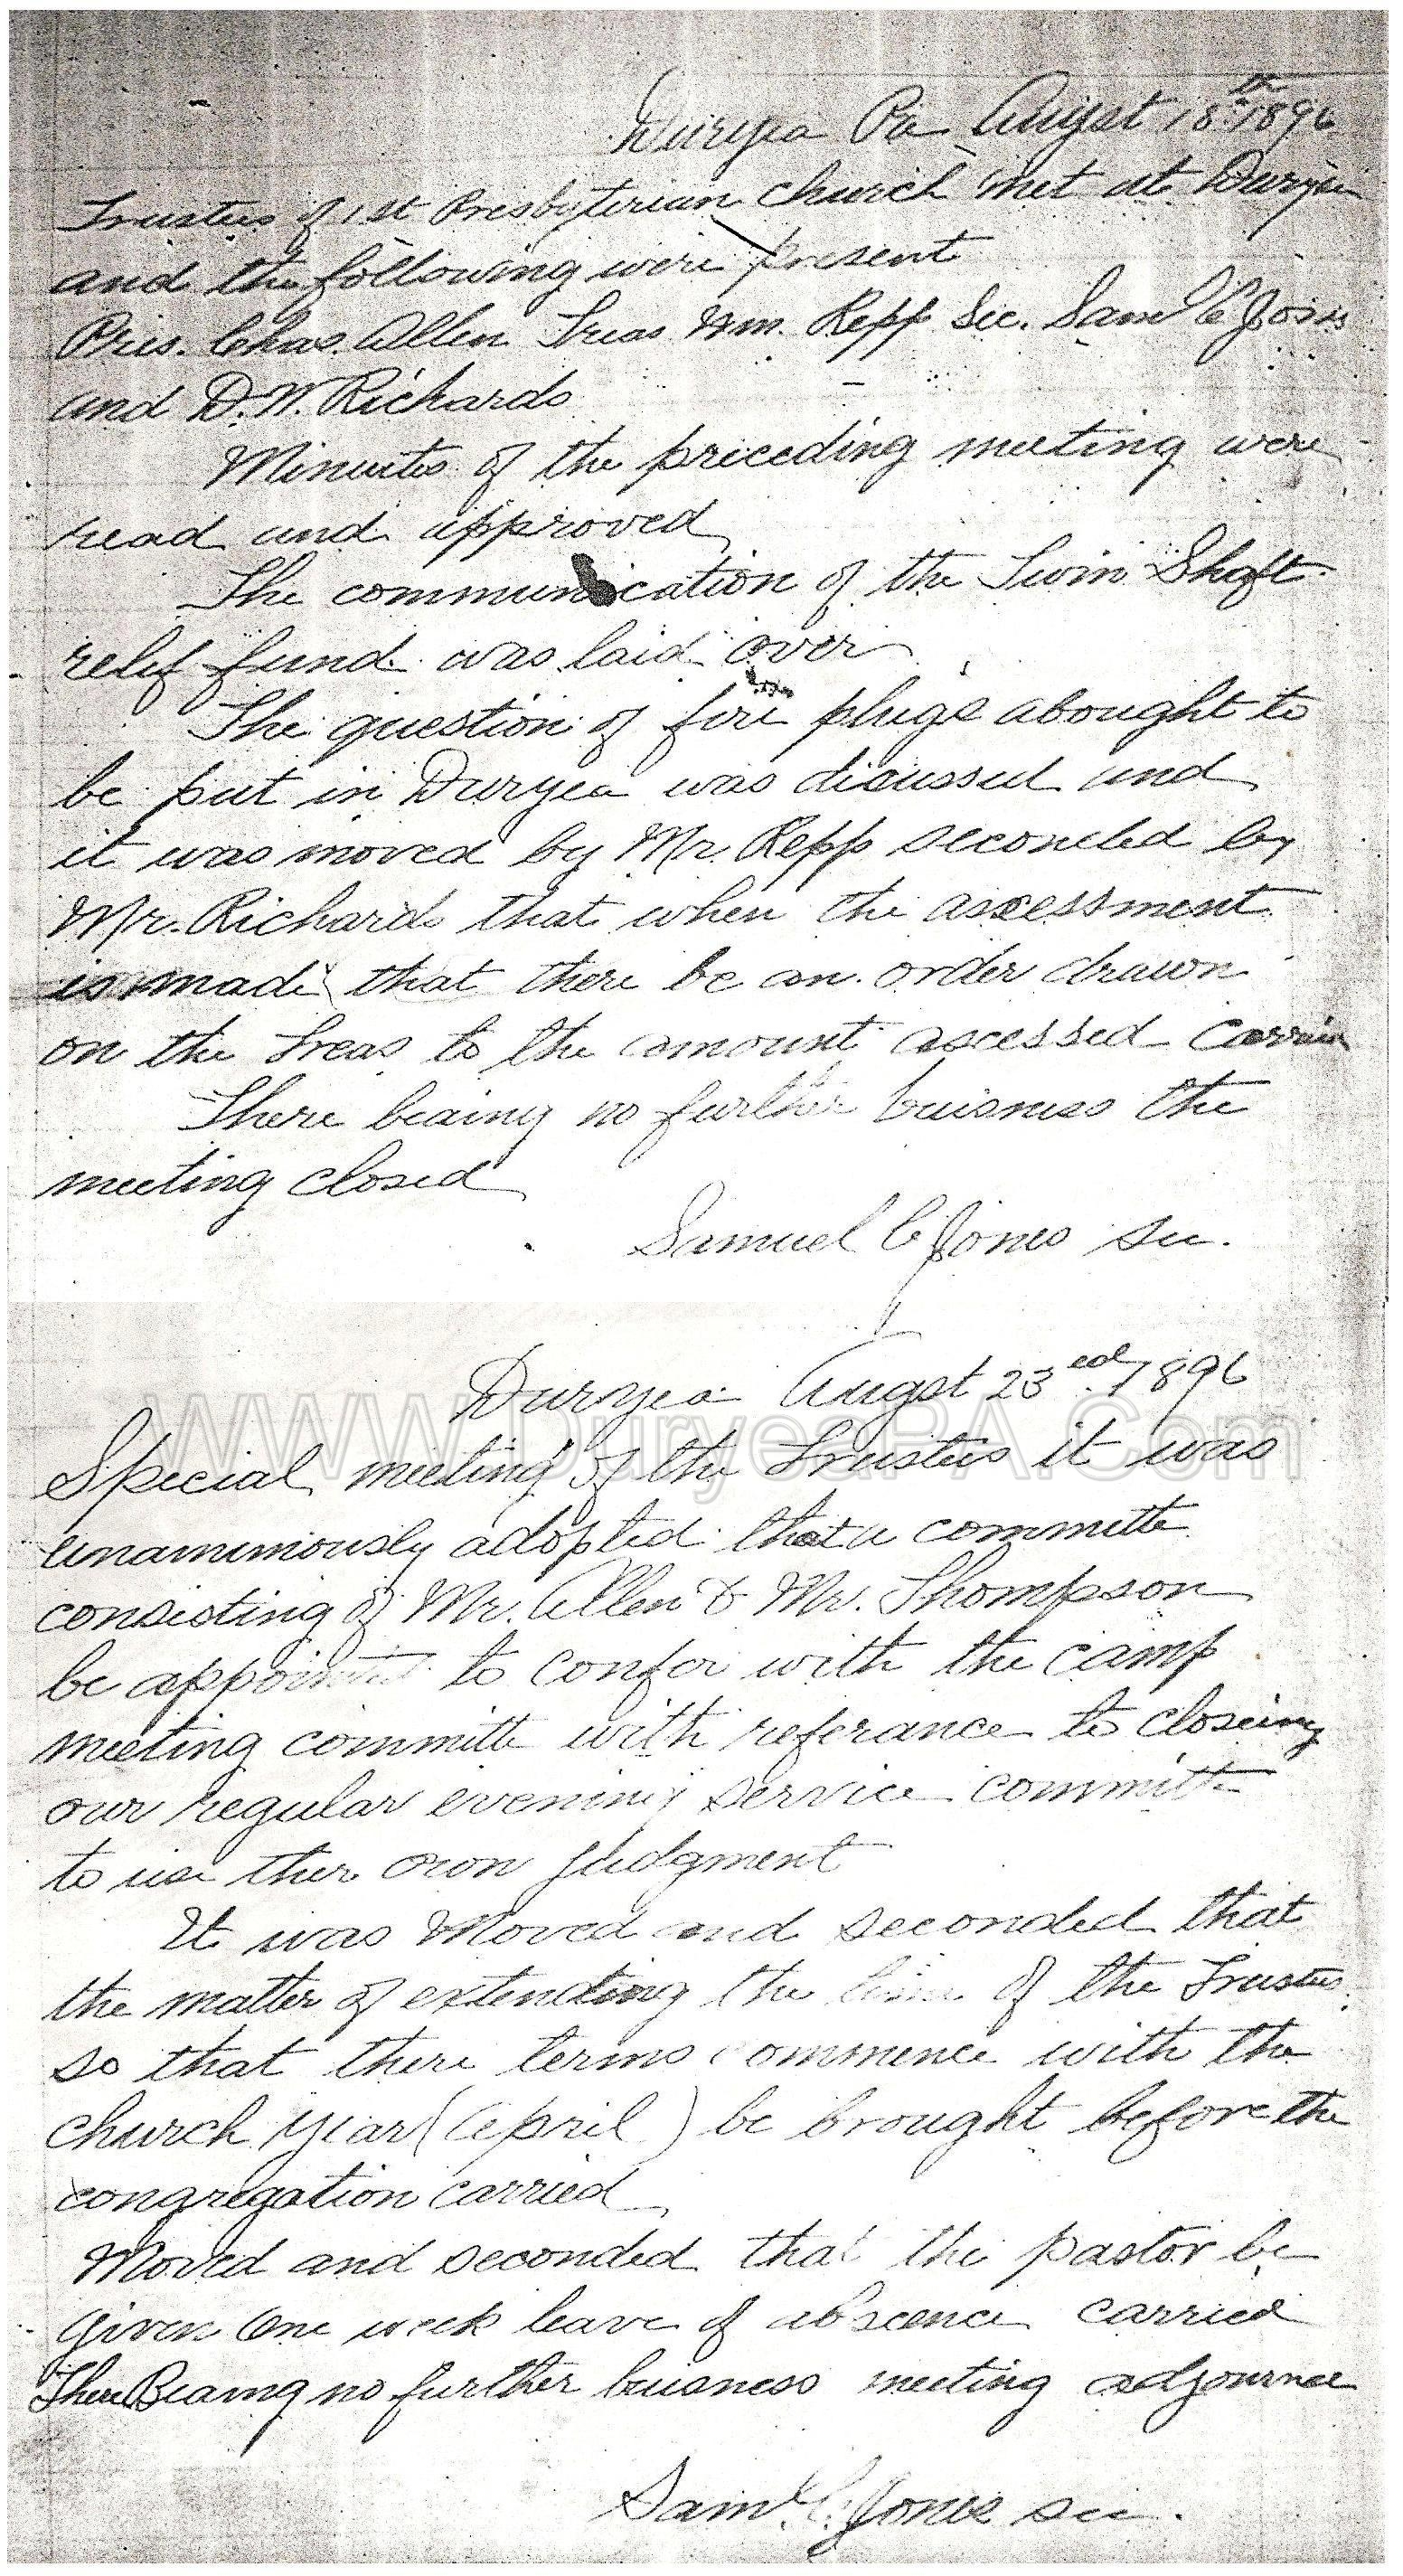 Duryea Pa Augst 18th 1896
Trustees of 1st Presbyterian church met at Duryea
and the following were present
Pres. Chas. Allen Treas Wm. Repp Sec. Saml C Jones
and D. W. Richards
Minuites of the preceding meeting were
read and approved
The communication of the Twin Shaft
relif fund was laid over
The question of fire plugs abought to
be put in Duryea was discussed and
it was moved by Mr. Repp seconded by
Mr. Richards that when the ascessment
is made that there be an order drawn
on the Treas to the amount ascessed
There beaing no further buisness the
meeting closed
Samuel C Jones sec.
Duryea Augst 23ed 1896
www.DuryeaPA.Com
Special meeting of the Trustees it was
unanimiously adopted that a committe
consisting of Mr. Allen & Mr. Thompson
be appointed to confer with the camp
meeting committe with referance to closeing
our regular evening service committe
to use ther own judgment
It was Moved and seconded that
the matter of extending the time of the Trustees
so that there terms commence with the
church year (April) be brought before the
congregation carried
Moved and seconded that the pastor be
given one week leave of abscence carried
There Beaing no further buisness meeting adjourned
Saml. C. Jones sec.